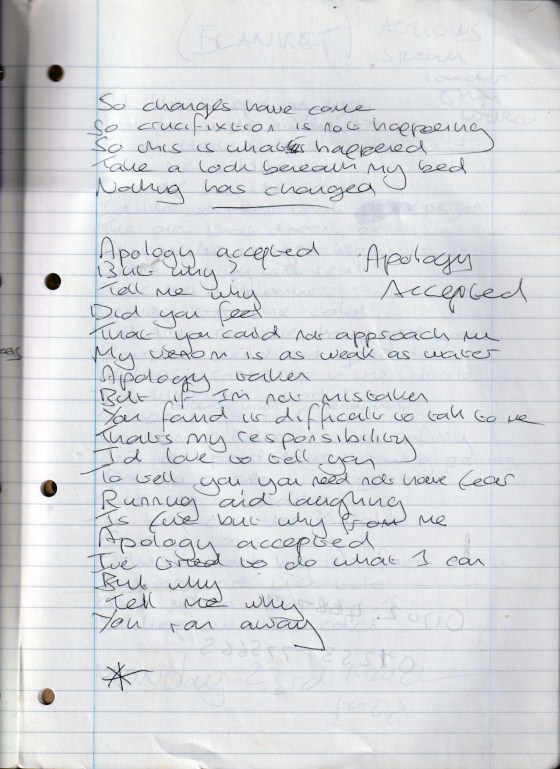 So changes have come
So crucifixtion is not happening
So this is what happened
Take a look beneath my bed
Nothing has changed
Apology accepted
Apology
Accepted
But why?
Tell me why
Did you feel
That you could not approach me
My venom is as weak as water
Apology taken
But if I'm not mistaken
You found it difficult to talk to me
That's my responsibility
I'd love to tell you
To tell you you need not have fear
Running and laughing
Is fine but why from me
Apology accepted
I've tried to do what I can
But why
Tell me why
You ran away
(BLANKET)
ACTIONS
SPEAK
louder
THAN